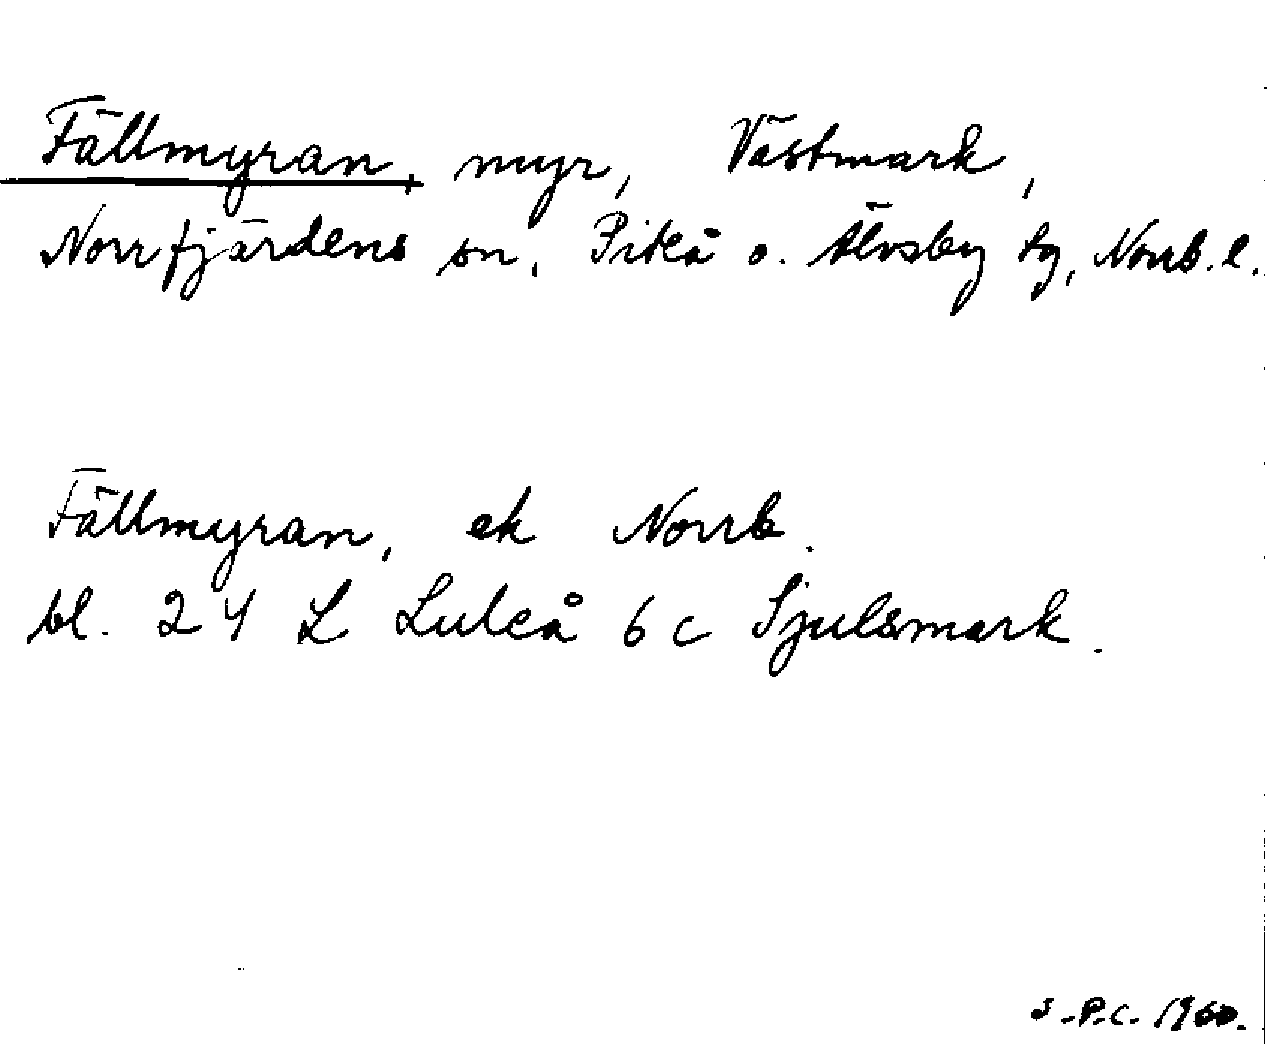 Fällmyran, myr, Västmark,
Norrfjärdens sn, Piteå o. Älvsby tg, Norrb. l.
Fällmyran, ek Norrb.
bl. 24 L Luleå 6 c Sjulsmark.
S.P.C. 1960.